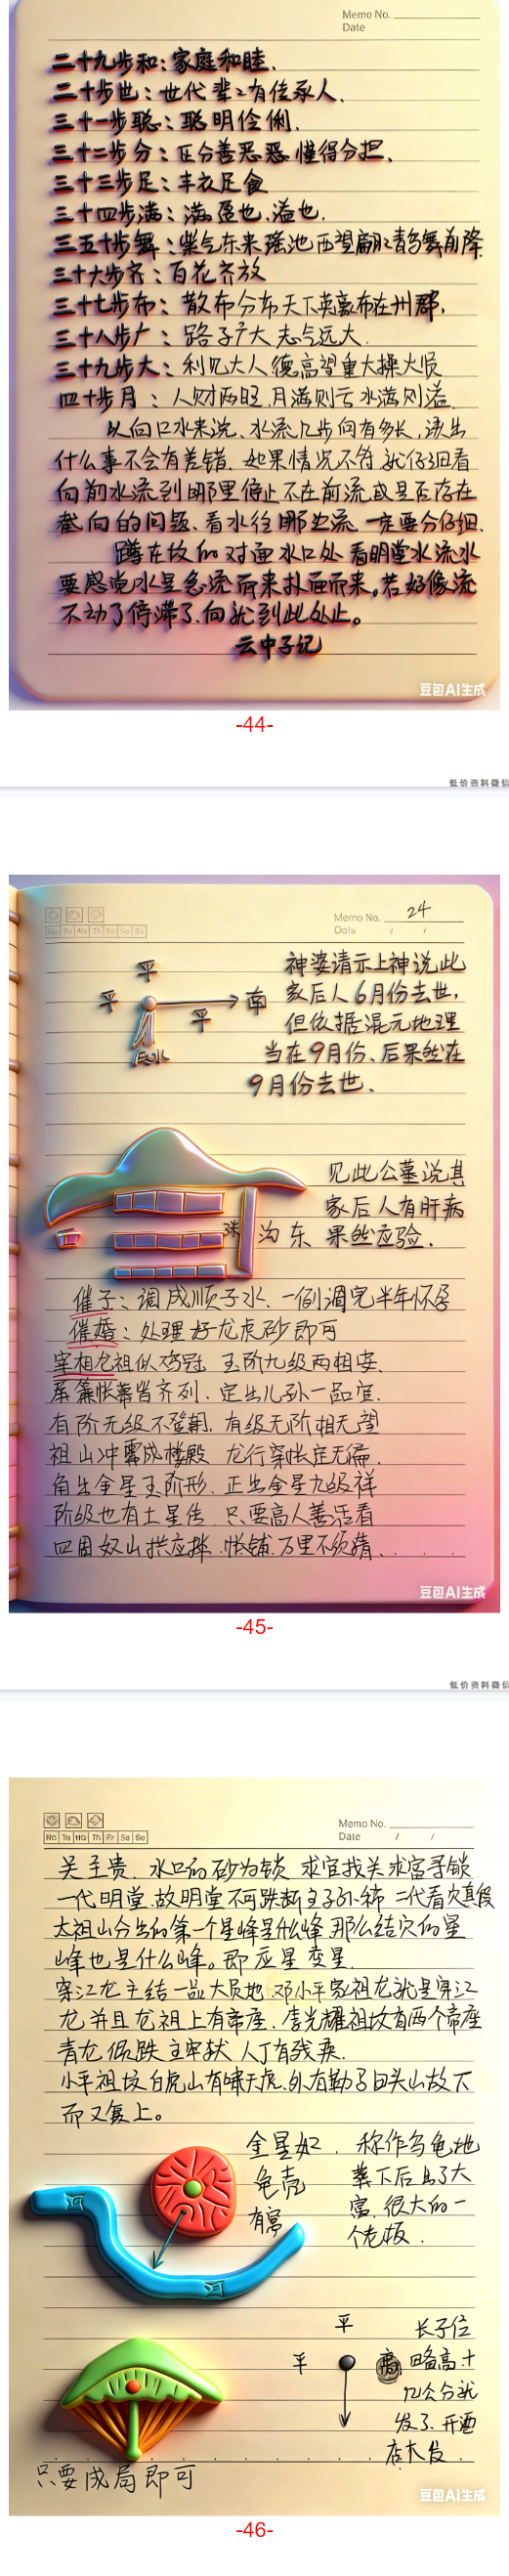 Memo No.
Date
二十九步和：家庭和睦.
二十步世：世代辈辈有传承人、
三十一步聪：聪明伶俐.
三十二步分：区分善恶恶懂得分担、
三十三步足：丰衣足食
三十四步满：满盈也、溢也.
三五十步舞：紫气东来瑶池西望翩翩青鸟舞前降
三十六步齐：百花齐放
三十七步布：散布分布天下英豪布在州郡.
三十八步广：路子广大志气远大.
三十九步大：利见大人德高望重大操大员
四十步月：人财两旺.月满则亏水满则溢.
从向口水来说、水流几步向有多长,读出
什么事不会有差错、如果情况不符就仔细看
向前水流到哪里停止不在前流或是否存在
截向的问题、看水往哪边流一定要分仔细、
蹲在坟的对面水口处看明堂水流水
要感觉水是急流而来扑面而来。若好像流
不动了停滞了.向就到此处止。
云中子记
豆包AI生成
-44-
低价资料微信
Memo No. 24
Date / /
平
神婆请示上神说此
平 南
家后人6月份去世,
平
但依据混元地理
当在9月份、后果然在
9月份去世.
见此公墓说其
家后人有肝病
沟东 果然应验.
催子：调成顺子水、一例调完半年怀孕
催婚：处理好龙虎砂即可
宰相龙祖似鸡冠 玉阶九级两相安.
屏帘帐幕皆齐列.定出儿孙一品官.
有阶无级不登朝.有级无阶相无望
祖山冲霄成楼殿 龙行穿帐定无偏.
角出金星玉阶形.正出金星九级祥
阶级也有土星传 只要高人善活看
四围奴山拱应排.帐铺万里不须猜.
豆包AI生成
-45-
低价资料微信
Memo No.
Date / /
关主贵、水口的砂为锁 求官找关求富寻锁
一代明堂.故明堂不可跌断主子孙稀 二代看穴真假
太祖山分出的第一个星峰是什么峰那么结穴的星
峰也是什么峰。即应星变星.
穿江龙主结一品大员地.邓小平家祖龙就是穿江
龙并且龙祖上有帝座.李光耀祖坟有两个帝座
青龙倾跌主牢狱 人丁有残疾.
小平祖坟白虎山有啸天虎.外有勒马回头山故下
而又复上。
金星如 称作乌龟地
龟壳 葬下后出了大
有窝 富.很大的一
个老板.
河
河
平 长子位
平 高 略高十
几公分就
发了.开酒
店大发.
只要成局即可
豆包AI生成
-46-